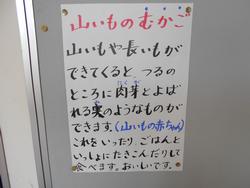 山いものむかご
山いもや長いもが
できてくると、つるの
ところに肉芽とよば
れる実のようなものが
できます。(山いもの赤ちゃん)
これをいったり、ごはんと
いっしょにたきこんだりして
食べます。おいしいです。